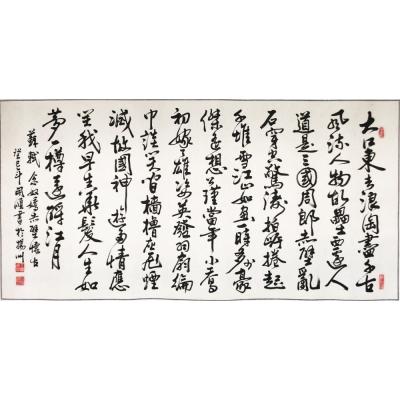 大江東去浪淘盡千古
風流人物故壘西邊人
道是三國周郎赤壁亂
石穿空驚濤拍岸捲起
千堆雪江山如畫一時多少豪
傑遙想公瑾當年小喬
初嫁了雄姿英發羽扇綸
巾談笑間檣櫓灰飛煙
滅故國神遊多情應
笑我早生華髮人生如
夢一樽還酹江月
蘇軾念奴嬌赤壁懷古
癸巳年國書於揚州